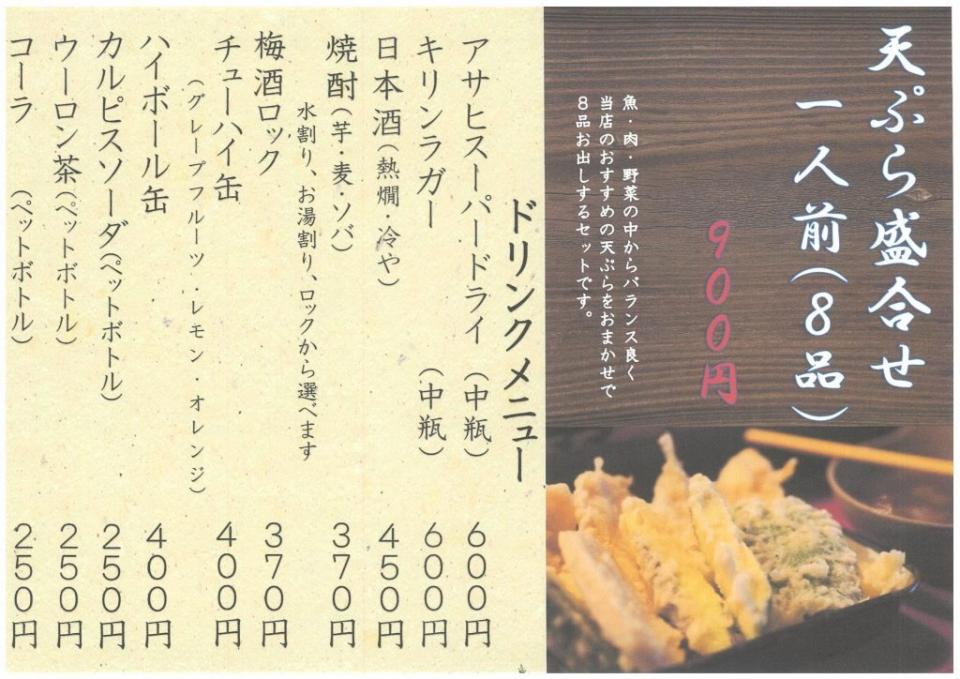 天ぷら盛合せ
一人前(8品)
900円
魚・肉・野菜の中からバランス良く
当店のおすすめの天ぷらをおまかせで
8品お出しするセットです。
ドリンクメニュー
アサヒスーパードライ (中瓶) 600円
キリンラガー (中瓶) 600円
日本酒(熱燗・冷や) 450円
焼酎(芋・麦・ソバ) 370円
水割り、お湯割り、ロックから選べます
梅酒ロック 370円
チューハイ缶 400円
(グレープフルーツ・レモン・オレンジ)
ハイボール缶 400円
カルピスソーダ(ペットボトル) 250円
ウーロン茶(ペットボトル) 250円
コーラ (ペットボトル) 250円